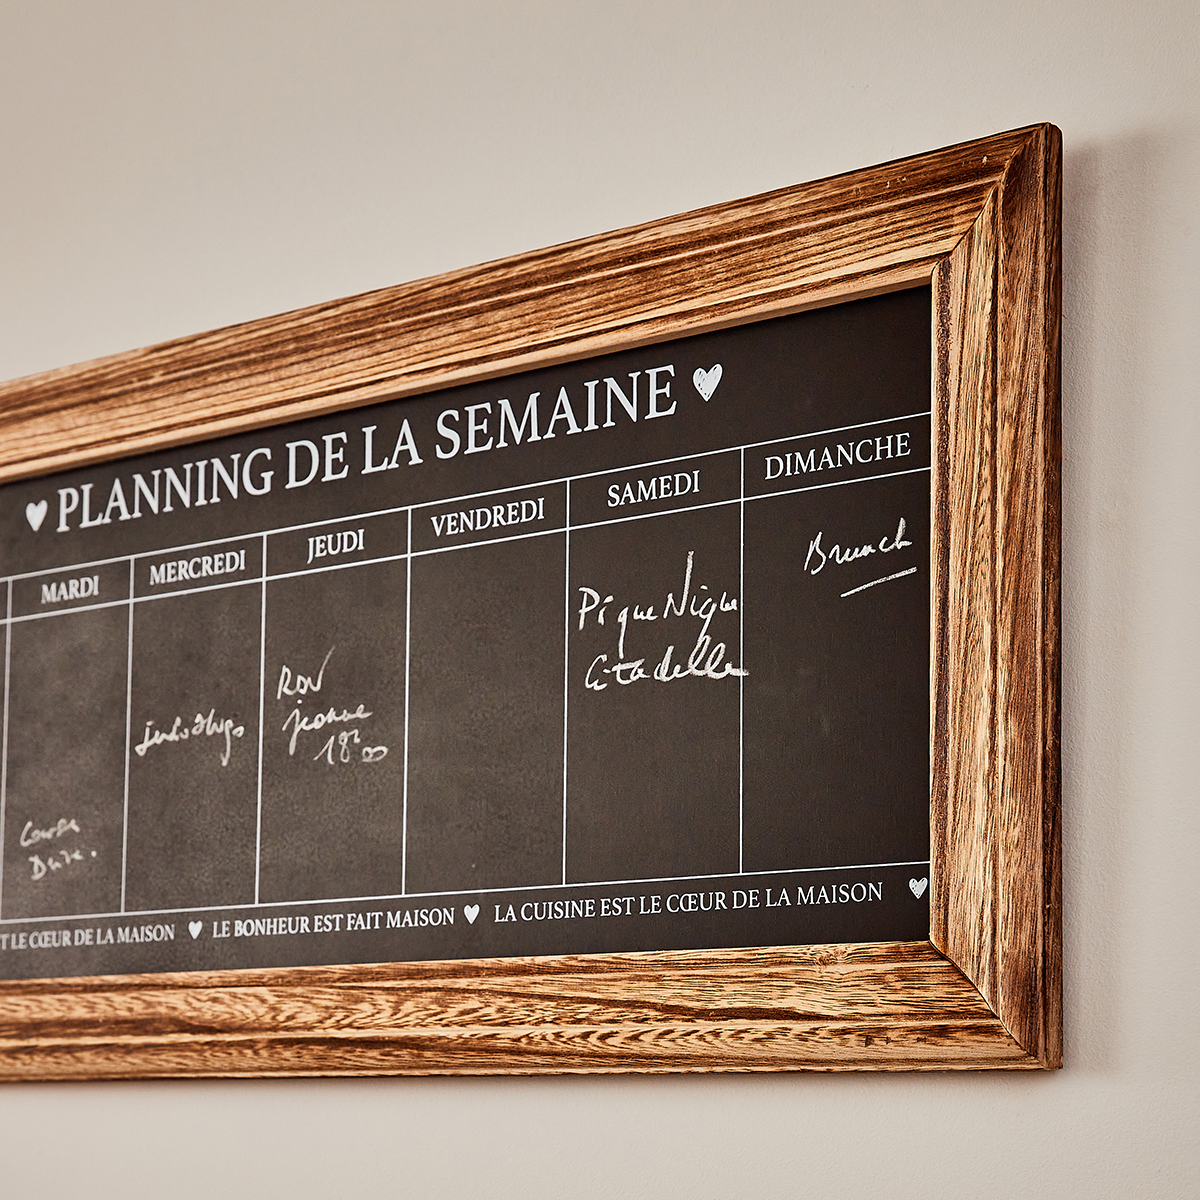 PLANNING DE LA SEMAINE
MARDI
MERCREDI
JEUDI
VENDREDI
SAMEDI
DIMANCHE
RDV
Jeanne
18h00
Pique Nique
Citadelle
Brunch
T LE CŒUR DE LA MAISON LE BONHEUR EST FAIT MAISON LA CUISINE EST LE CŒUR DE LA MAISON